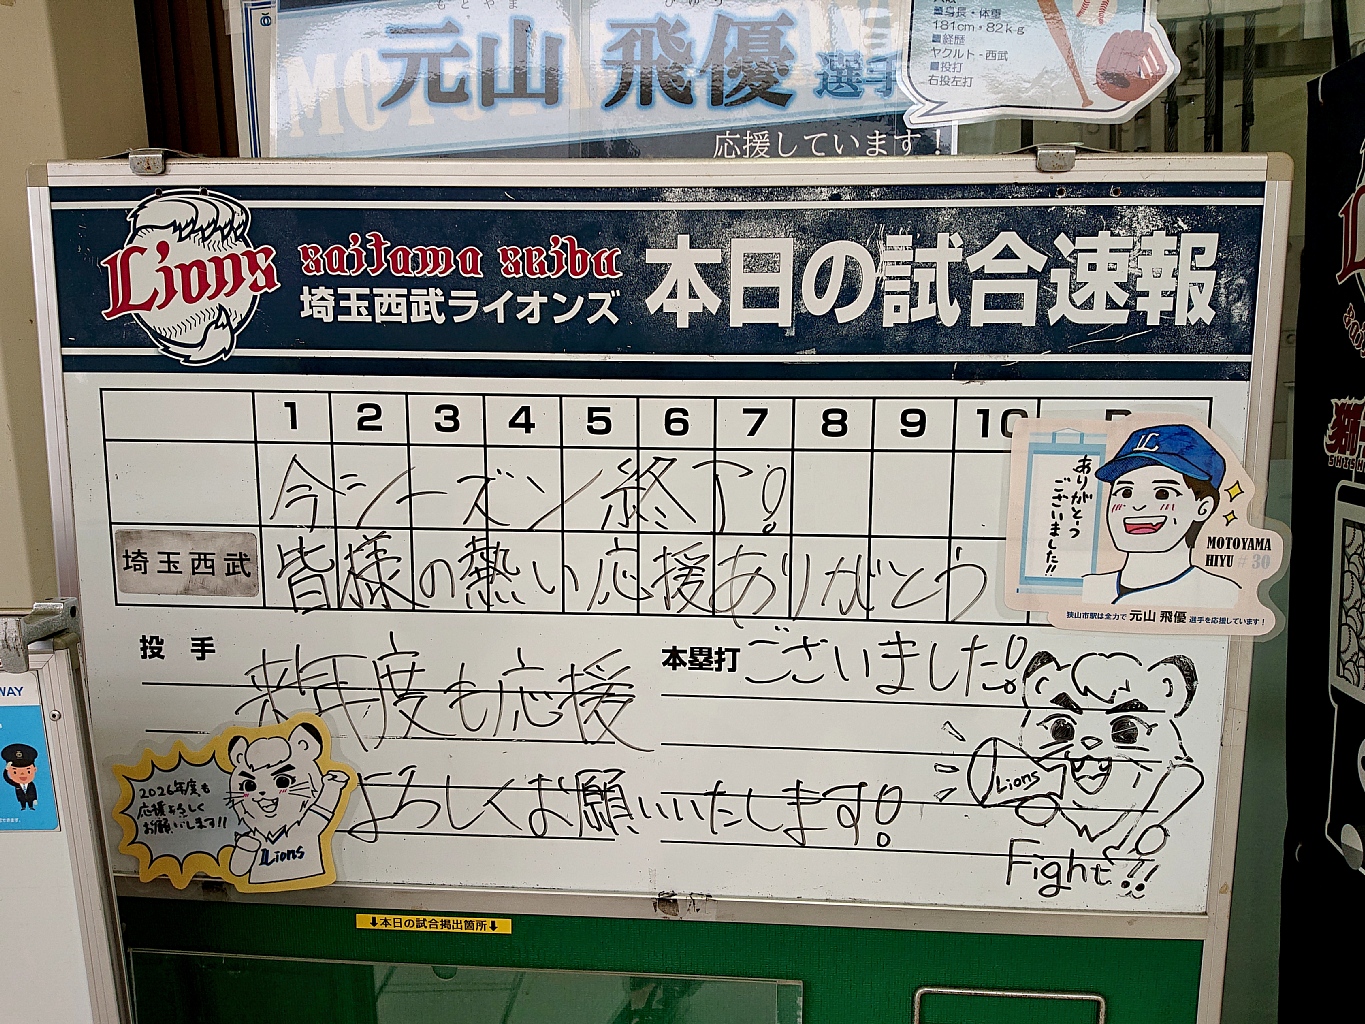 もとやま ひゆう
元山 飛優 選手
応援しています！
■身長・体重
181cm・82kg
■経歴
ヤクルト - 西武
■投打
右投左打
Lions
saitama seibu
埼玉西武ライオンズ
本日の試合速報
1 2 3 4 5 6 7 8 9 10
今シーズン終了!
埼玉西武
皆様の熱い応援ありがとう
ございました!
投手
本塁打
来年度も応援
よろしくお願いいたします!
ありがとう
ございました!!
MOTOYAMA
HIYU #30
狭山市駅は全力で 元山 飛優 選手を応援しています！
2026年度も
応援よろしく
お願いします!!
Lions
Lions
Fight!!
↓本日の試合掲出箇所↓
WAY